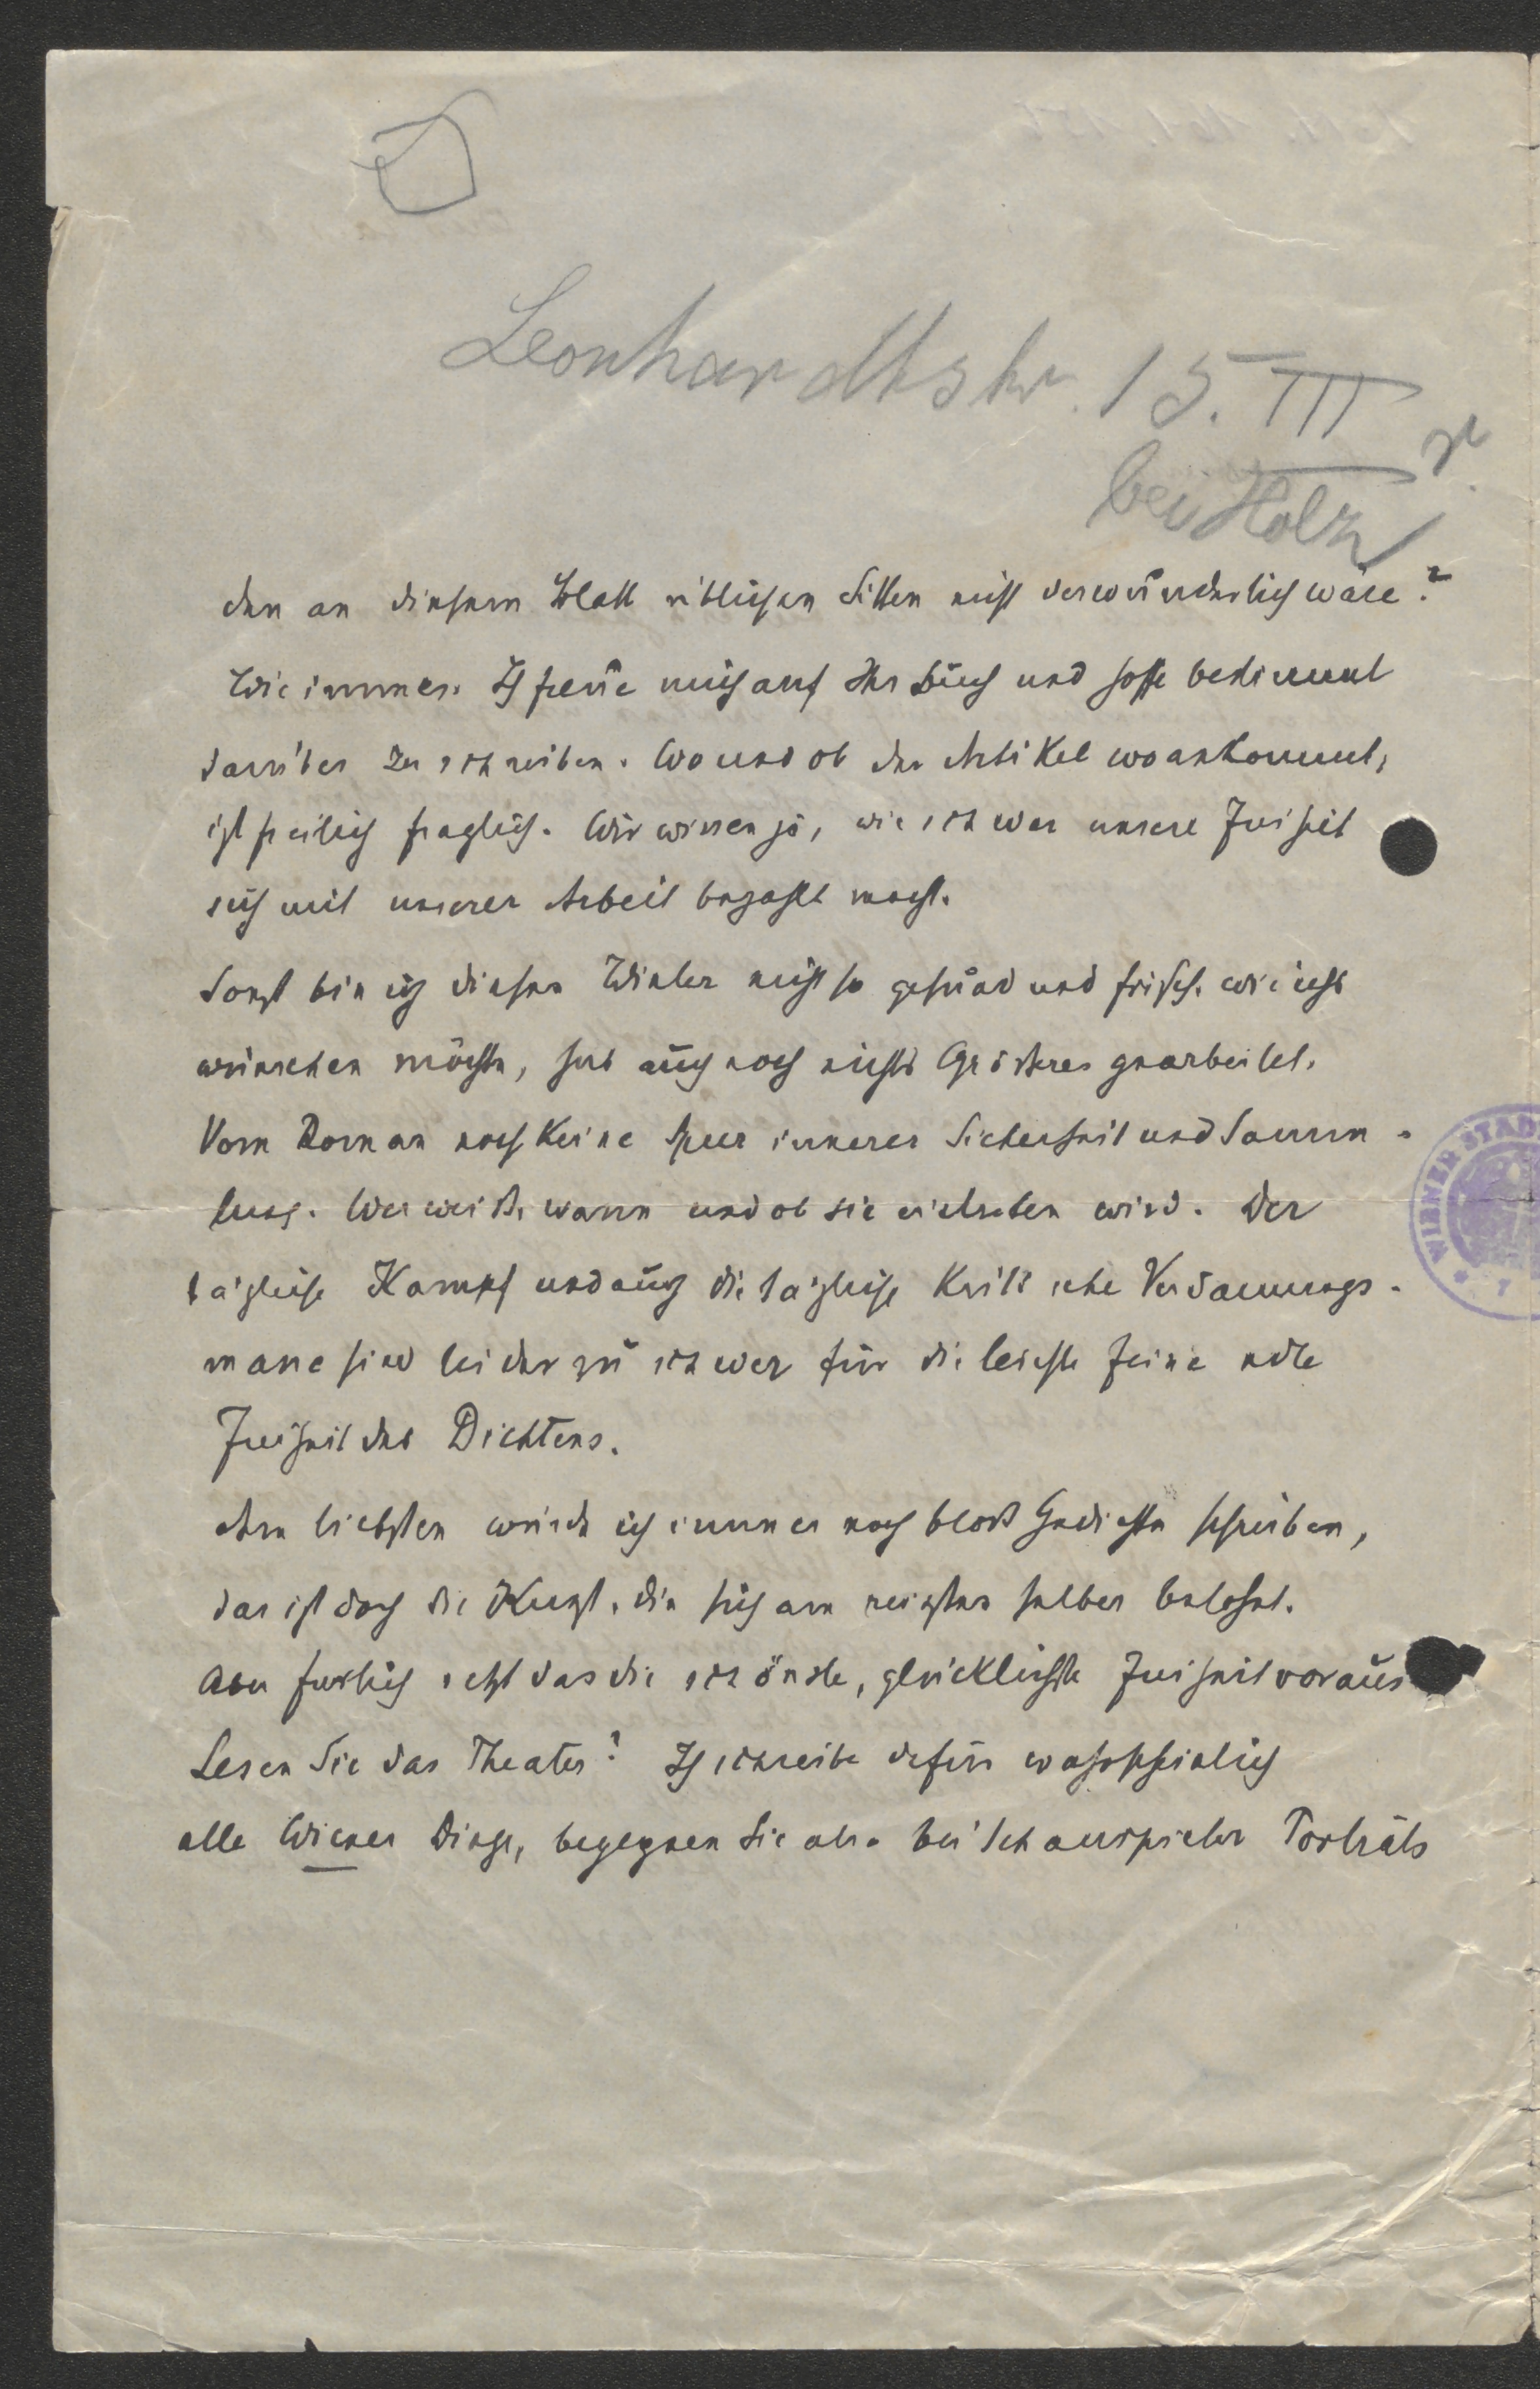 Leonhardtstr. 15. III
bei Holz
den an diesem Blatt üblichen Sitten nicht verwunderlich wäre?
Wie immer. Ich freue mich auf Ihr Buch und hoffe bestimmt
darüber zu schreiben. Wo und ob der Artikel wo ankommt,
ist freilich fraglich. Wir wissen ja, wie schwer unsere Freiheit
sich mit unserer Arbeit bezahlt macht.
Sonst bin ich diesen Winter nicht so gesund und frisch wie ichs
wünschen möchte, hab auch noch nichts Grösseres gearbeitet.
Vom Roman noch keine Spur innerer Sicherheit und Samm-
lung. Wer weiß, wann und ob sie eintreten wird. Der
tägliche Kampf und auch die tägliche kritische Verdauungs-
masse sind leider zu schwer für die leichte feine edle
Freiheit des Dichtens.
Am liebsten würde ich immer noch bloß Gedichte schreiben,
das ist doch die Kunst, die sich am reichsten selber belohnt.
Aber freilich setzt das die schönste, glücklichste Freiheit voraus
Lesen Sie das Theater? Ich schreibe dafür wahrscheinlich
alle Wiener Dinge, begegnen Sie also bei Schauspieler Porträts
WIENER STAD